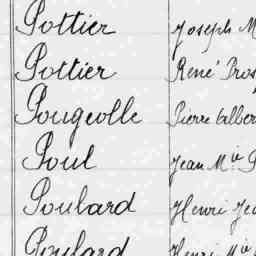 Pottier Joseph M
Pottier René Pros
Pougeolle Pierre Gilber
Poul Jean M^ie P
Poulard Henri Jea
Poulard Henri M^ie